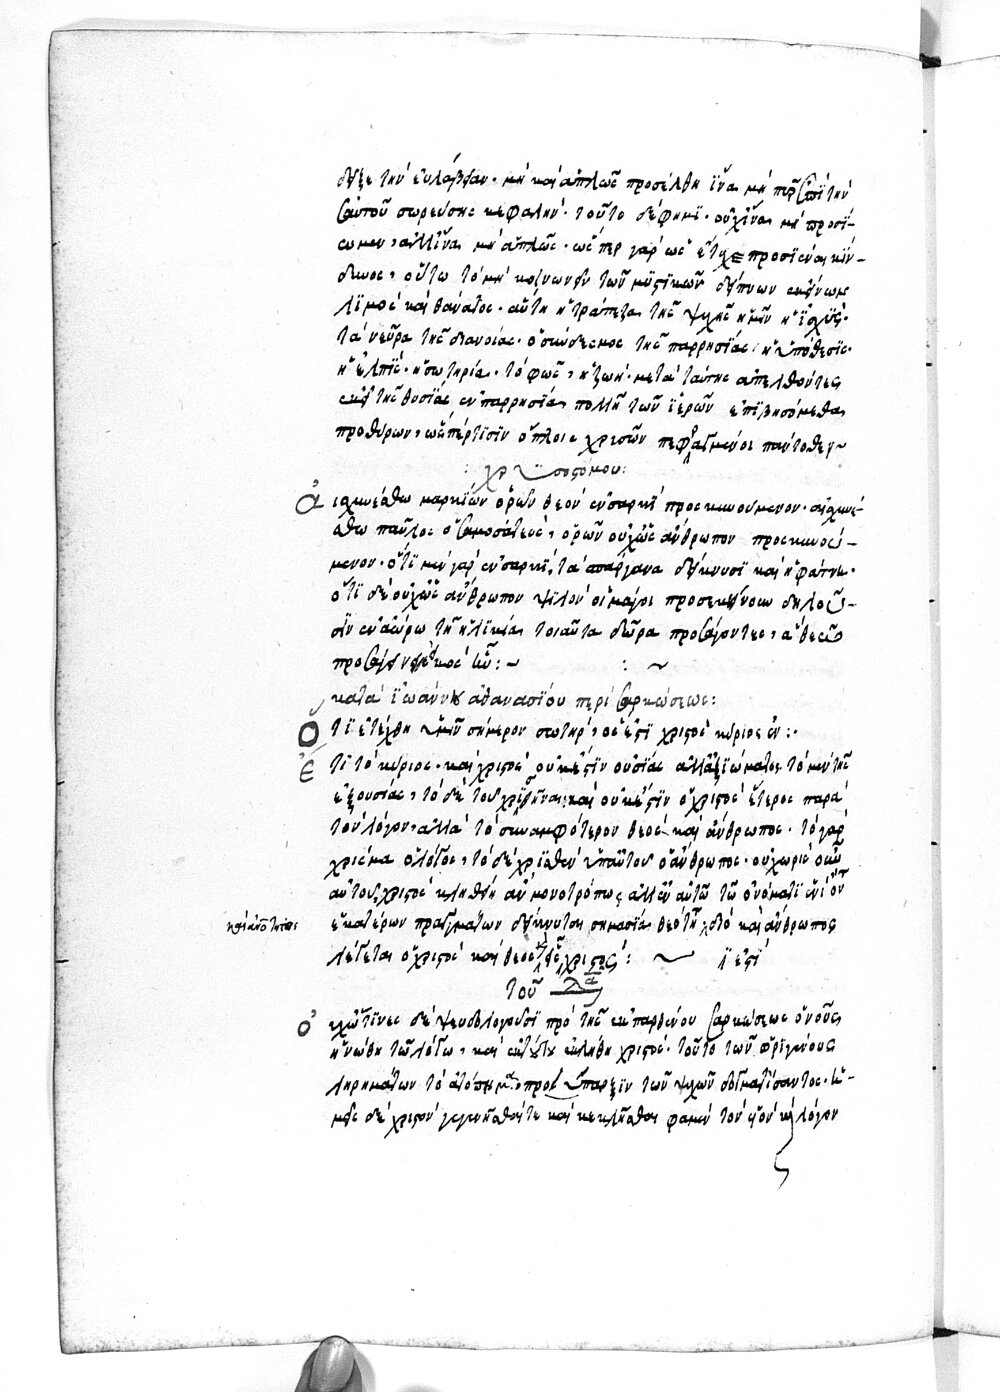 δεῖξε τὴν εὐλάβειαν· μὴ καὶ ἁπλῶς προσέλθη ἵνα μὴ πῦρ ἐπὶ τὴν
ἑαυτοῦ σωρεύσης κεφαλήν· τοῦτο δέ φημι· οὐχ ἵνα μὴ προσΐ-
ωμεν, ἀλλ' ἵνα μὴ ἁπλῶς· ὥσπερ γὰρ ὡς ἔτυχε προσϊέναι κίν-
δυνος, οὕτω τὸ μὴ κοινωνεῖν τῶν μυστικῶν δείπνων ἐκείνων
λϊμὸς καὶ θάνατος· αὕτη ἡ τράπεζα τῆς ψυχῆς ἡμῶν ἡ ἰσχὺς·
τὰ νεῦρα τῆς διανοίας· ὁ σύνδεσμος τῆς παρρησίας· ἡ ὑπόθεσις·
ἡ ἐλπὶς· ἡ σωτηρία· τὸ φῶς, ἡ ζωή· μετὰ ταύτης ἀπελθόντες
ἐκεῖ τῆς θυσίας ἐν παρρησία πολλῆ τῶν ἱερῶν ἐπιβησόμεθα
προθύρων, ὥσπέρ τισϊν ὅπλοις χρυσῶν πεφραγμένοι πάντοθεν~
: χρυσοστόμου:
Αἰσχυνέσθω μαρκίων ὁρῶν θεὸν ἐν σαρκὶ προσκυνούμενον· αἰσχυνέ-
σθω παῦλος ὁ σαμοσατεὺς, ὁρῶν οὐχ ὡς ἄνθρωπον προσκυνού-
μενον· ὅτι μὲν γὰρ ἐν σαρκὶ, τὰ σπάργανα δείκνυσι καὶ ἡ φάτνη·
ὅτι δὲ οὐχ ὡς ἄνθρωπον ψιλὸν οἱ μάγοι προσεκύνουν δηλοῦ-
σϊν ἐν ἀώρω τῆ ἡλικία τοιαῦτα δῶρα προσάγοντες, ἃ θεῶ
προσάγειν εἰκὸς ἦν:~ : ~
κατὰ ἰωάννην ἀθανασίου περὶ σαρκώσεως:
Ὅτι ἐτέχθη ὑμῖν σήμερον σωτὴρ, ὅς ἐστι χριστὸς κύριος ἐν:·
Ἔτι τὸ κύριος· καὶ χριστὸς οὐκ ἔστϊν οὐσίας ἀλλ' ἀξιώματος. τὸ μὲν τῆς
ἐξουσίας, τὸ δὲ τοῦ χρισθῆναι· καὶ οὐκ ἔστϊν ὁ χριστὸς ἕτερος παρὰ
τὸν λόγον, ἀλλὰ τὸ συναμφότερον θεὸς καὶ ἄνθρωπος· τὸ γὰρ
χρίσμα ὁ λόγος, τὸ δὲ χρισθὲν ὑπ' αὐτοῦ ὁ ἄνθρωπος· οὐ χωρὶς οὖν
αὐτοῦ, χριστὸς κληθείη ἂν μονοτρόπως ἀλλ' ἐν αὐτῶ τῶ ὀνόματι ἑνὶ ὄντι
ἑκατέρων πραγμάτων δείκνυται σημασία θεότητος, διὸ καὶ ἄνθρωπος
λέγεται ὁ χριστὸς καὶ θεὸς χριστὸς: ~ ἐστϊ
τοῦ
Ὅ τϊνες δὲ ψευδολογοῦσϊ πρὸ τῆς ἐκ παρθένου σαρκώσεως ὁ νοῦς
ἡνώθη τῶ λόγω, καὶ ἐκλήθη χριστός· τοῦτο τῶν ὠριγένους
ληρημάτων τὸ ἀτόπημα προΰπαρξϊν τῶν ψυχῶν δογματίσαντος· ἡ-
μεῖς δὲ χριστὸν γεγενῆσθαί τε καὶ κεκλῆσθαι φαμὲν τὸν υἱὸν καὶ λόγον